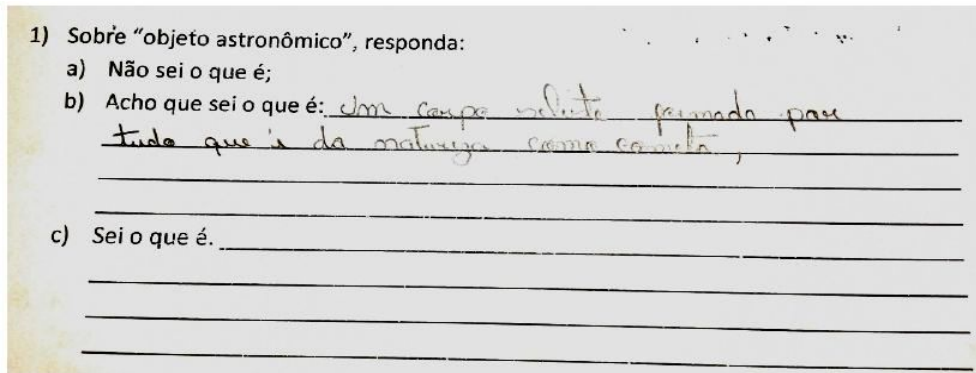 1) Sobre "objeto astronômico", responda:
a) Não sei o que é;
b) Acho que sei o que é: Um corpo celeste formado por
tudo que é da natureza como cometa,
c) Sei o que é.